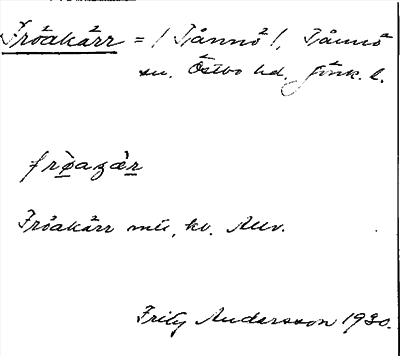 Fröakärr = / Tånnö /, Tånnö
sn. Östbo hd. Jönk. l.
frøazær
Fröakärr
Fritz Andersson 1930.